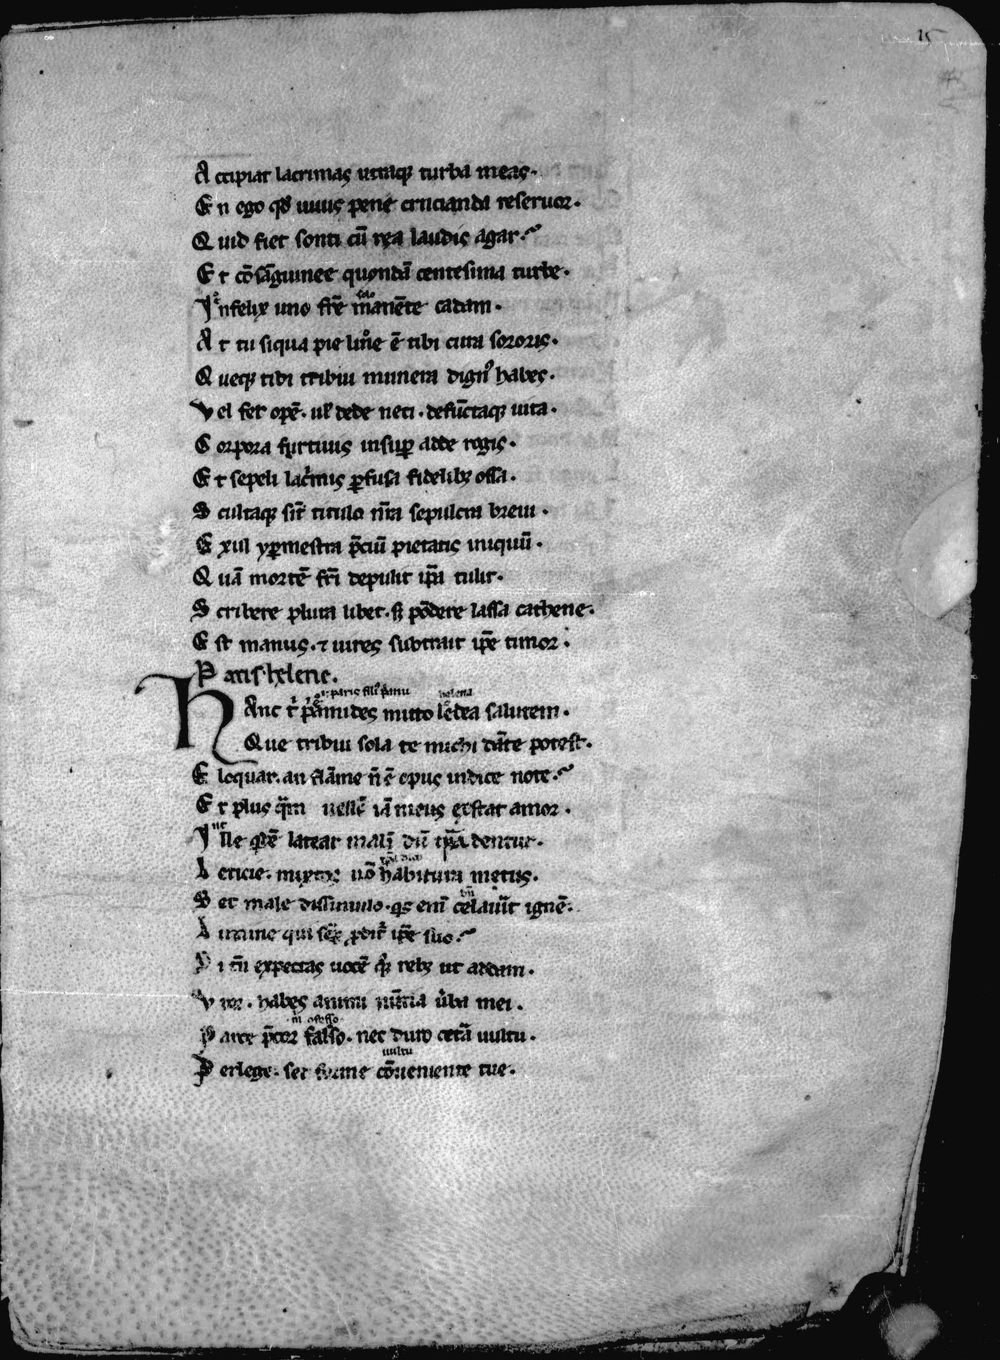 15
A ccipiat lacrimas utraq; turba meas.
E n ego qđ uiuus pene crucianda reseruor.
Q uid fiet sonti cū rea laudis agar.
E t cōsāguinee quondā centesima turbe.
I nfelix uno fr̄e manēte cadam.
A t tu siqua pie lin̄e ē tibi cura sororis.
Q ueq; tibi tribui munera dign⁹ habes.
V el fer opē. ul̓ dede neci. defūctaq; uita.
C orpora furtiuis insup̱ adde rogis.
E t sepeli lac̓mis p̱fusa fidelib; ossa.
S cultaq; sīt titulo nr̄a sepulcra breui.
E xul yp̱mestra p̄ciū pietatis iniquū.
Q uā mortē fr̄i depulit ip̄a tulit.
S cribere plura libet. s; pōdere lassa cathene.
E st manus. ⁊ uires subtrait ip̄e timor.
P aris helene.
paris fili⁹ p̓amu helena
H Anc t̓ p̓amides mitto ledea salutem.
Q ue tribui sola te michi dāte potest.
E loquar. an flāme n̄ ē opus indice note.
E t plus q̄m uellē iā meus exstat amor.
I lle q̓dē lateat mali dū tp̄a dentur.
L eticie. mixtos nō habitura metus.
S et male dissimulo. q̓s enī celauīt ignē.
L umine qui sēp̱ p̱dit̓ ip̄e suo.
S i tn̄ expectas uocē q̓ reb; ut addam.
V ror. habes animi nūtia ūba mei.
P arce p̄cor falso. nec duro cetā uultu.
uultu
P erlege. set forme cōueniente tue.